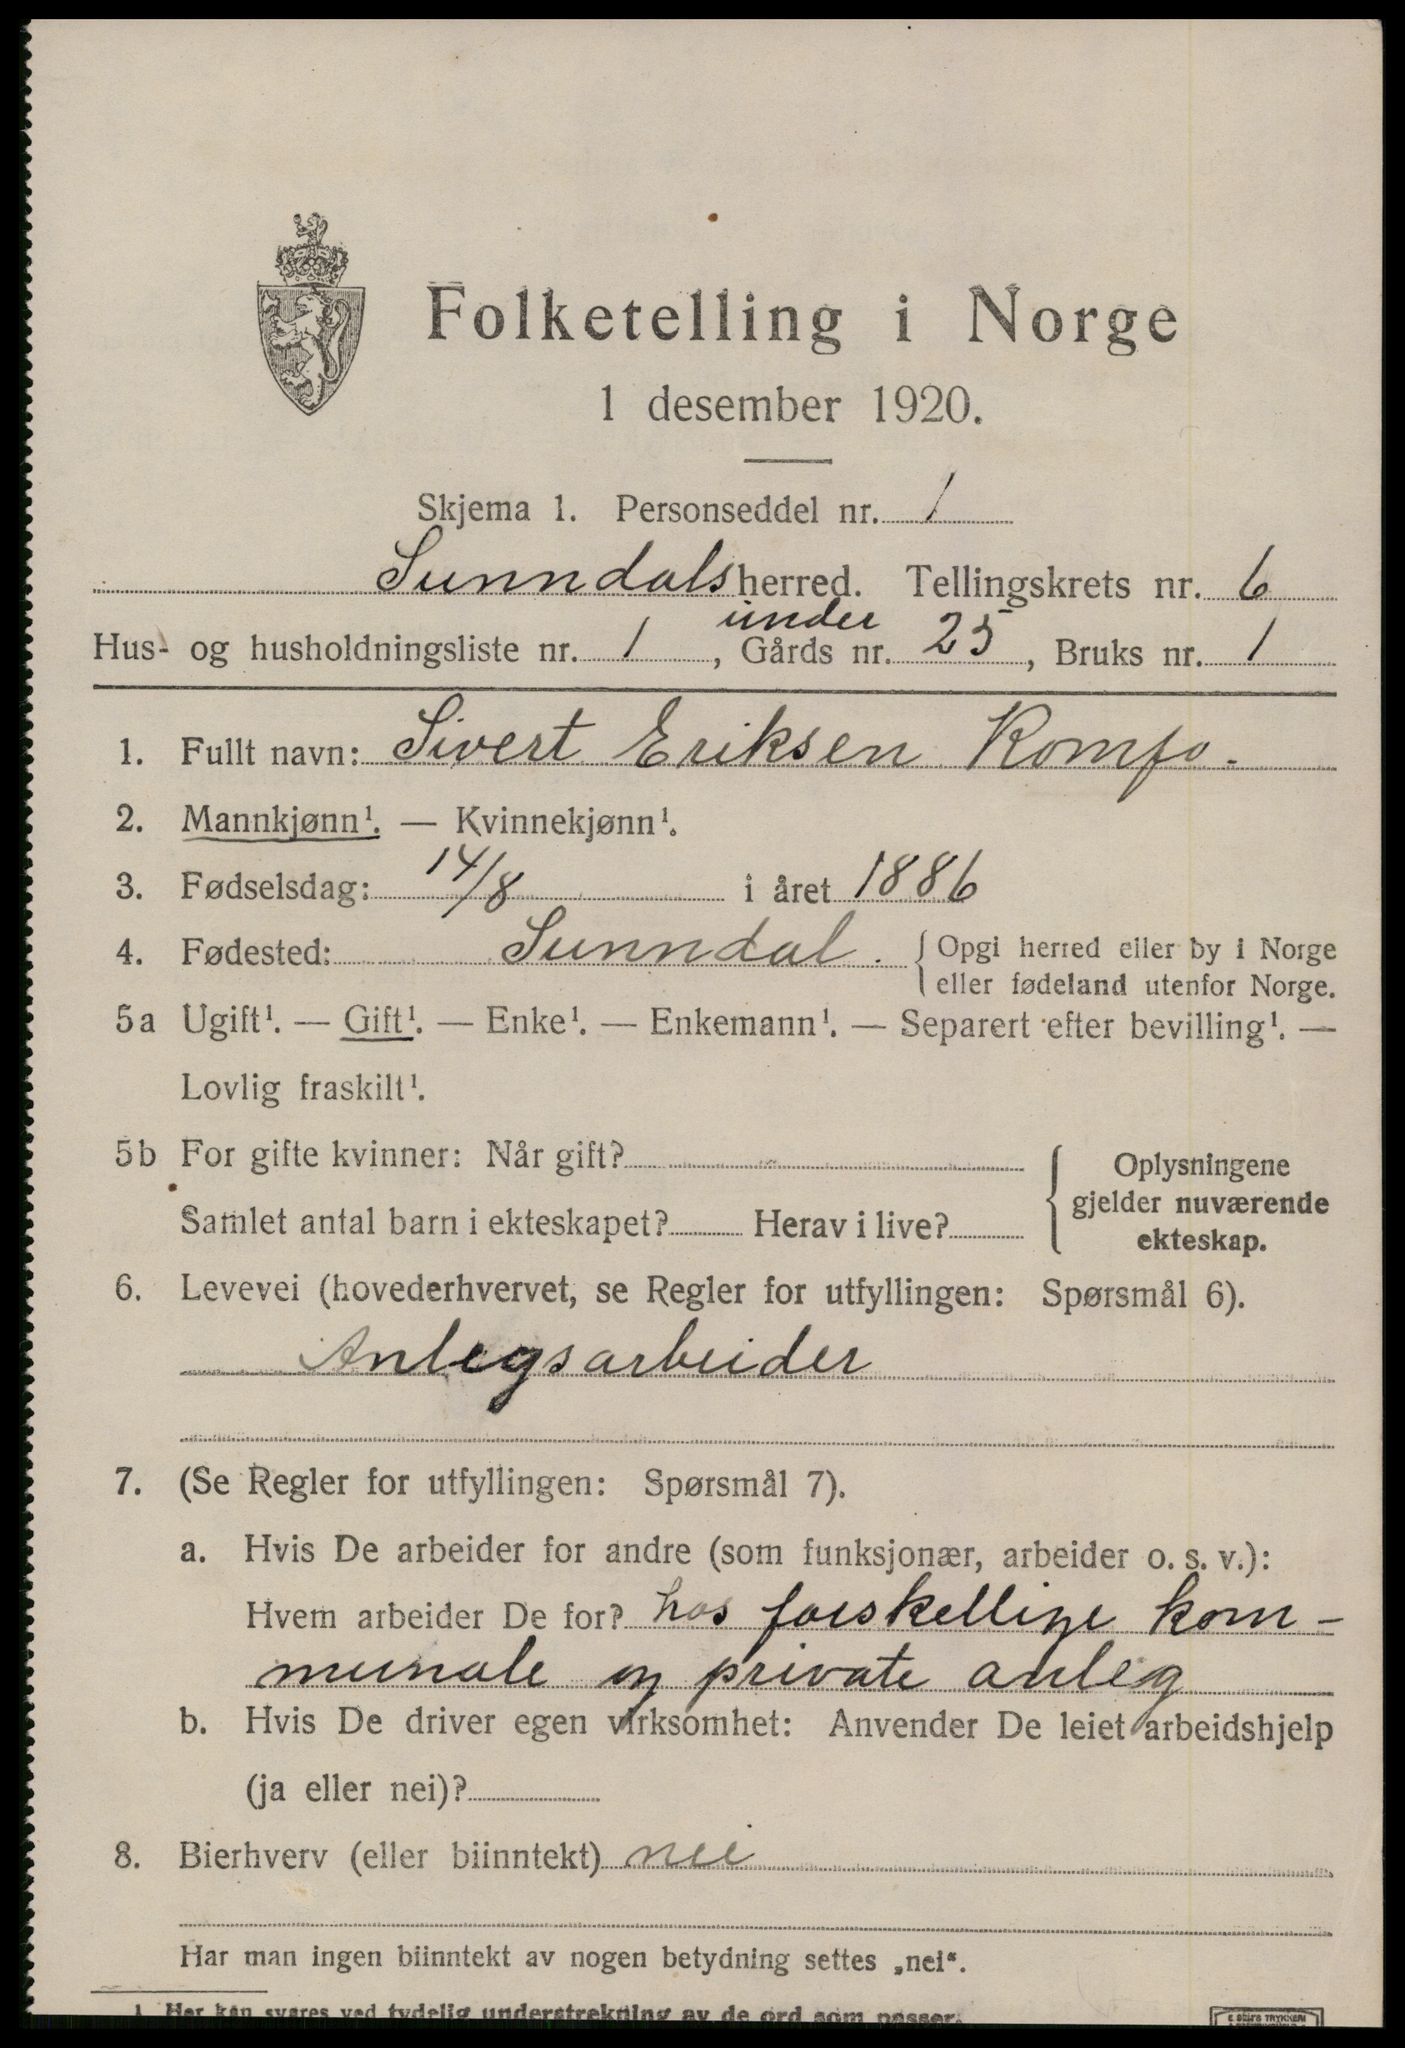 Folketelling i Norge
1 desember 1920.
Skjema 1. Personseddel nr. 1
Sunndals herred. Tellingskrets nr. 6
under
Hus- og husholdningsliste nr. 1, Gårds nr. 25, Bruks nr. 1
1. Fullt navn: Sivert Eriksen Romfo.
2. Mannkjønn¹. — Kvinnekjønn¹.
3. Fødselsdag: 14/8 i året 1886
4. Fødested: Sunndal. { Opgi herred eller by i Norge
eller fødeland utenfor Norge.
5a Ugift¹. — Gift¹. — Enke¹. — Enkemann¹. — Separert efter bevilling¹. —
Lovlig fraskilt¹.
5b For gifte kvinner: Når gift?
Samlet antal barn i ekteskapet? Herav i live?
{ Oplysningene
gjelder nuværende
ekteskap.
6. Levevei (hovederhvervet, se Regler for utfyllingen: Spørsmål 6).
Anlegsarbeider
7. (Se Regler for utfyllingen: Spørsmål 7).
a. Hvis De arbeider for andre (som funksjonær, arbeider o. s. v.):
Hvem arbeider De for? hos forskellige kom-
munale og private anleg
b. Hvis De driver egen virksomhet: Anvender De leiet arbeidshjelp
(ja eller nei)?
8. Bierhverv (eller biinntekt) nei
Har man ingen biinntekt av nogen betydning settes „nei“.
1 Her kan svares ved tydelig understrekning av de ord som passer.